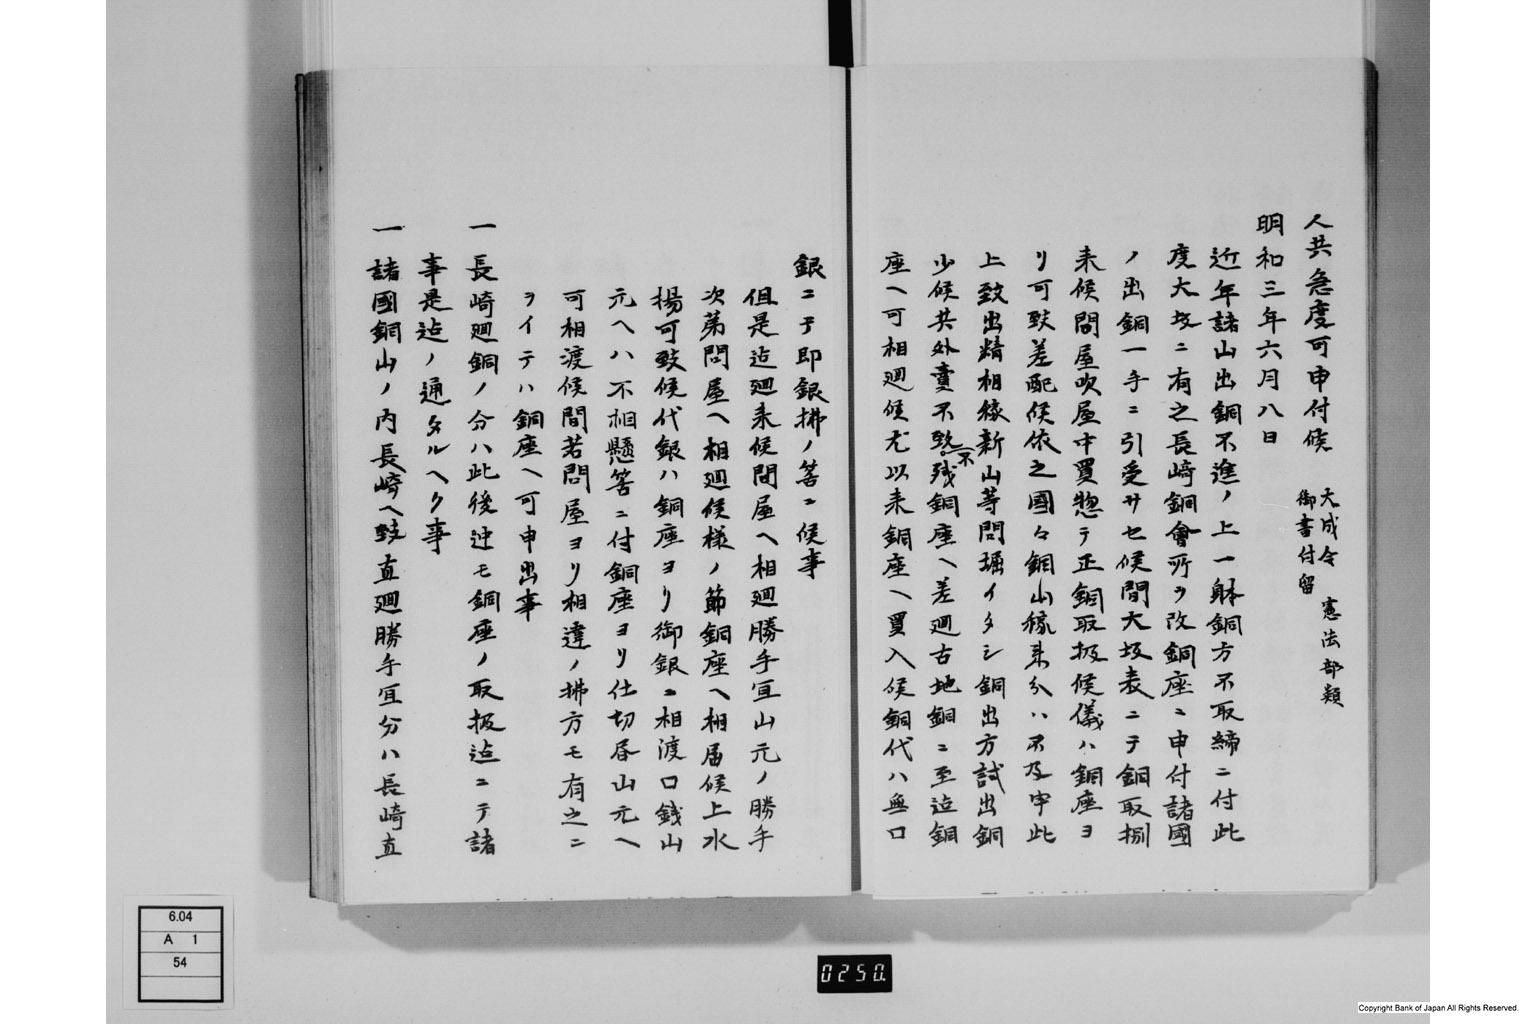 人共急度可申付候
天成令 憲法部類
御書付留
明和三年六月八日
近年諸山出銅不進ノ上一躰銅方不取締ニ付此
度大坂ニ有之長﨑銅會所ヲ改銅座ニ申付諸國
ノ出銅一手ニ引受サセ候間大坂表ニテ銅取捌
来候問屋吹屋中買惣テ正銅取扱候儀ハ銅座ヨ
リ可致差配候依之國々銅山稼来分ハ不及申此
上致出精相稼新山等問堀イタシ銅出方試出銅
少候共外賣不致(不)残銅座ヘ差廻古地銅ニ至迠銅
座ヘ可相廻候尤以来銅座ヘ買入候銅代ハ無口
銀ニテ即銀拂ノ筈ニ候事
但是迠廻来候問屋ヘ相廻勝手冝山元ノ勝手
次第問屋ヘ相廻候様ノ節銅座ヘ相届候上水
揚可致候代銀ハ銅座ヨリ御銀ニ相渡口錢山
元ヘハ不相懸筈ニ付銅座ヨリ仕切昼山元ヘ
可相渡候間若問屋ヨリ相違ノ拂方モ有之ニ
ヲイテハ銅座ヘ可申出事
一長崎廻銅ノ分ハ此後迚モ銅座ノ取扱迠ニテ諸
事是迠ノ通タルヘク事
一諸國銅山ノ内長崎ヘ致直廻勝手冝分ハ長崎直
6.04
A 1
54
0250.
Copyright Bank of Japan All Rights Reserved.